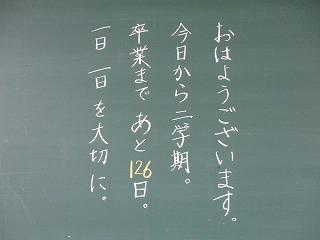 おはようございます。
今日から二学期。
卒業まであと126日。
一日一日を大切に。